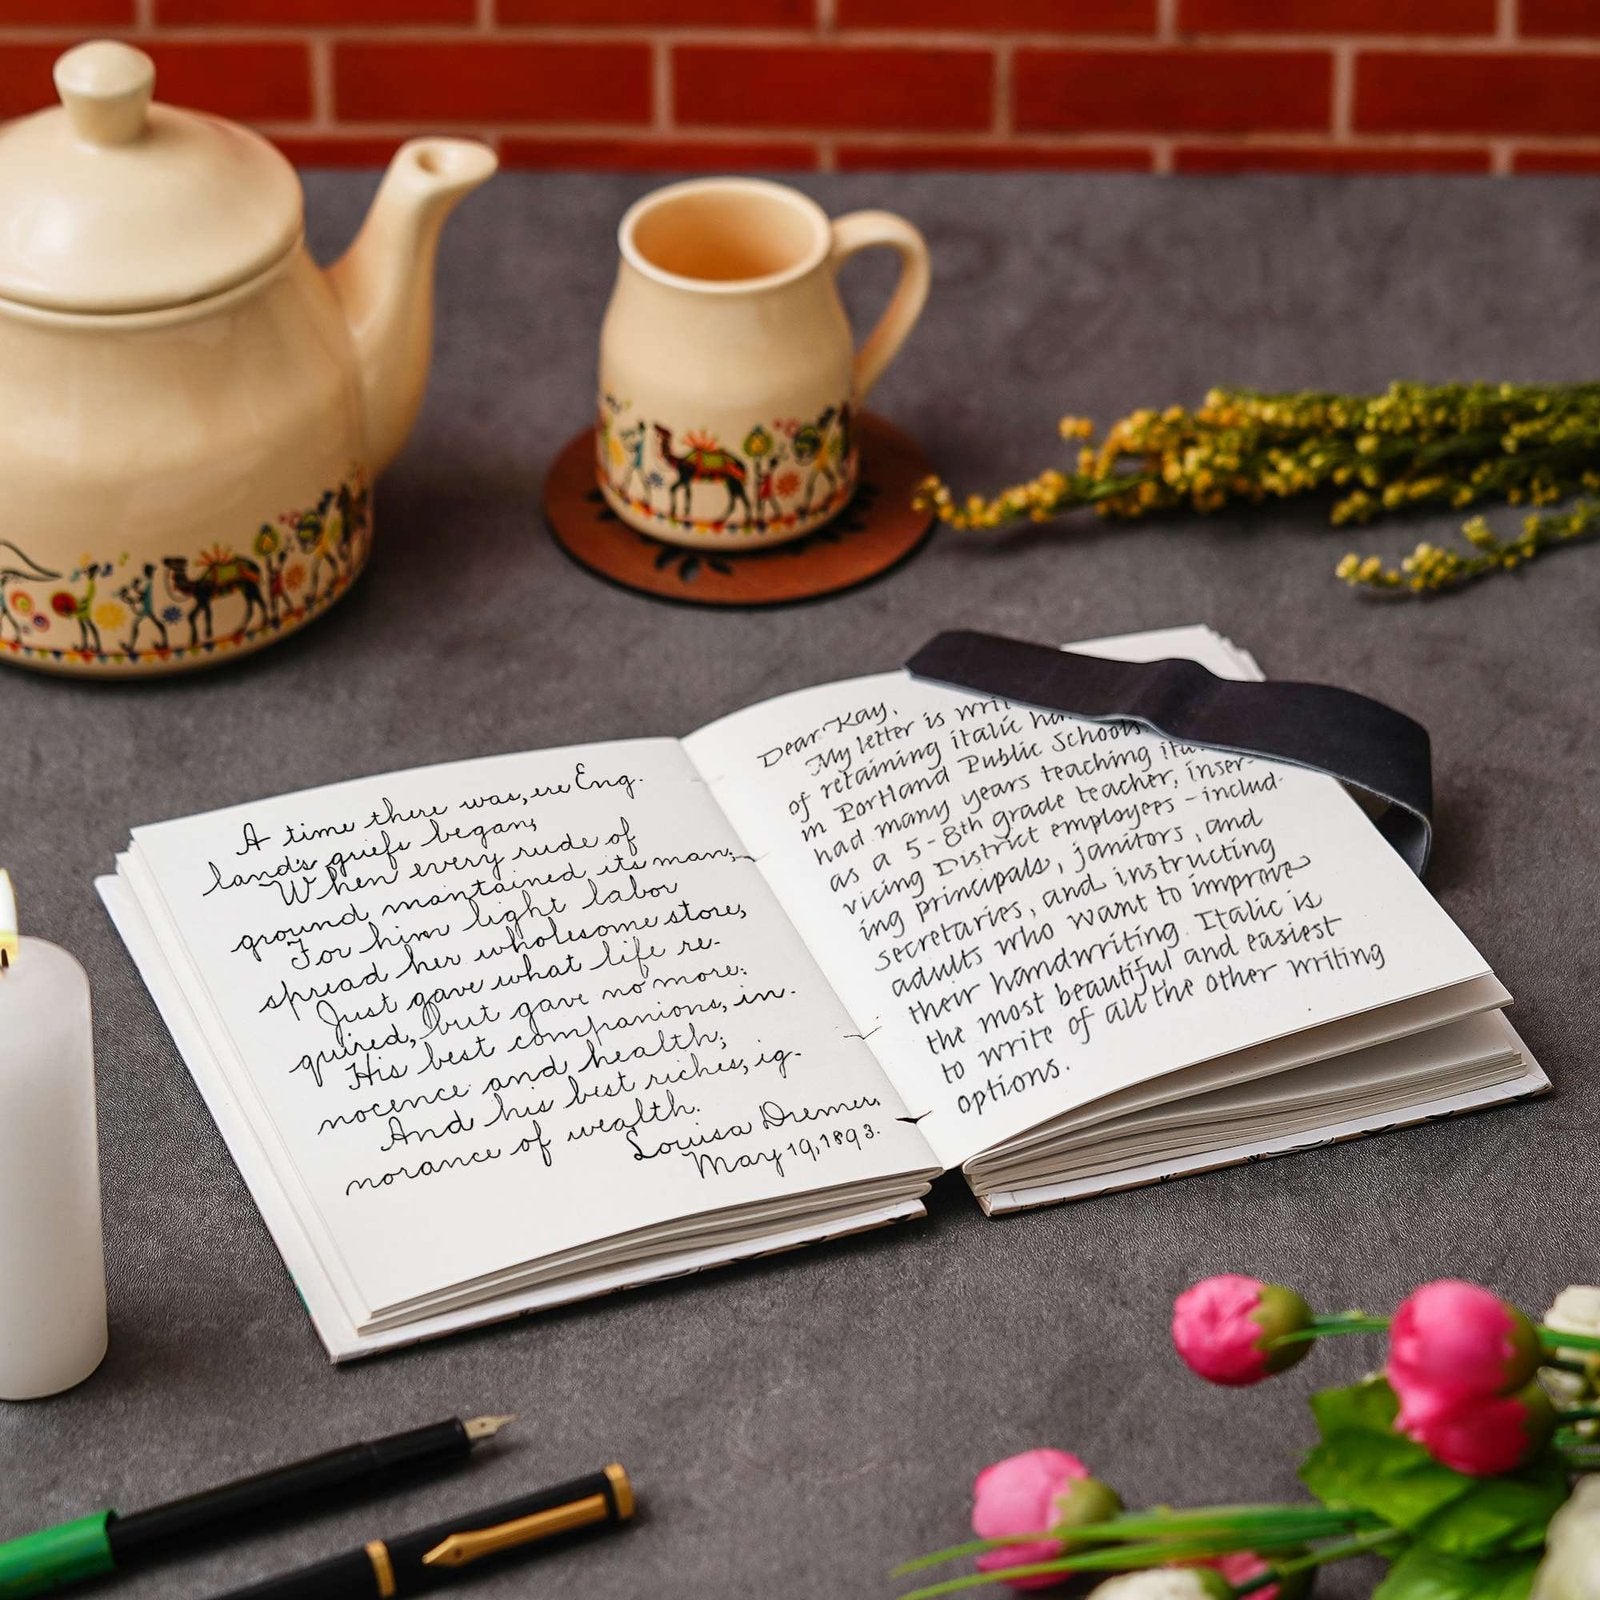 A time there was, ere Eng-
land's griefs began,
When every rude of
ground maintained its man;
For him light labor
spread her wholesome store,
Just gave what life re-
quired, but gave no more:
His best companions, in-
nocence and health;
And his best riches, ig-
norance of wealth.
Louisa Diemer,
May 19, 1893.
Dear Kay,
My letter is
of retaining italic
in Portland Public Schools
had many years teaching
as a 5-8th grade teacher, inser-
vicing District employees - includ-
ing principals, janitors, and
secretaries, and instructing
adults who want to improve
their handwriting. Italic is
the most beautiful and easiest
to write of all the other writing
options.